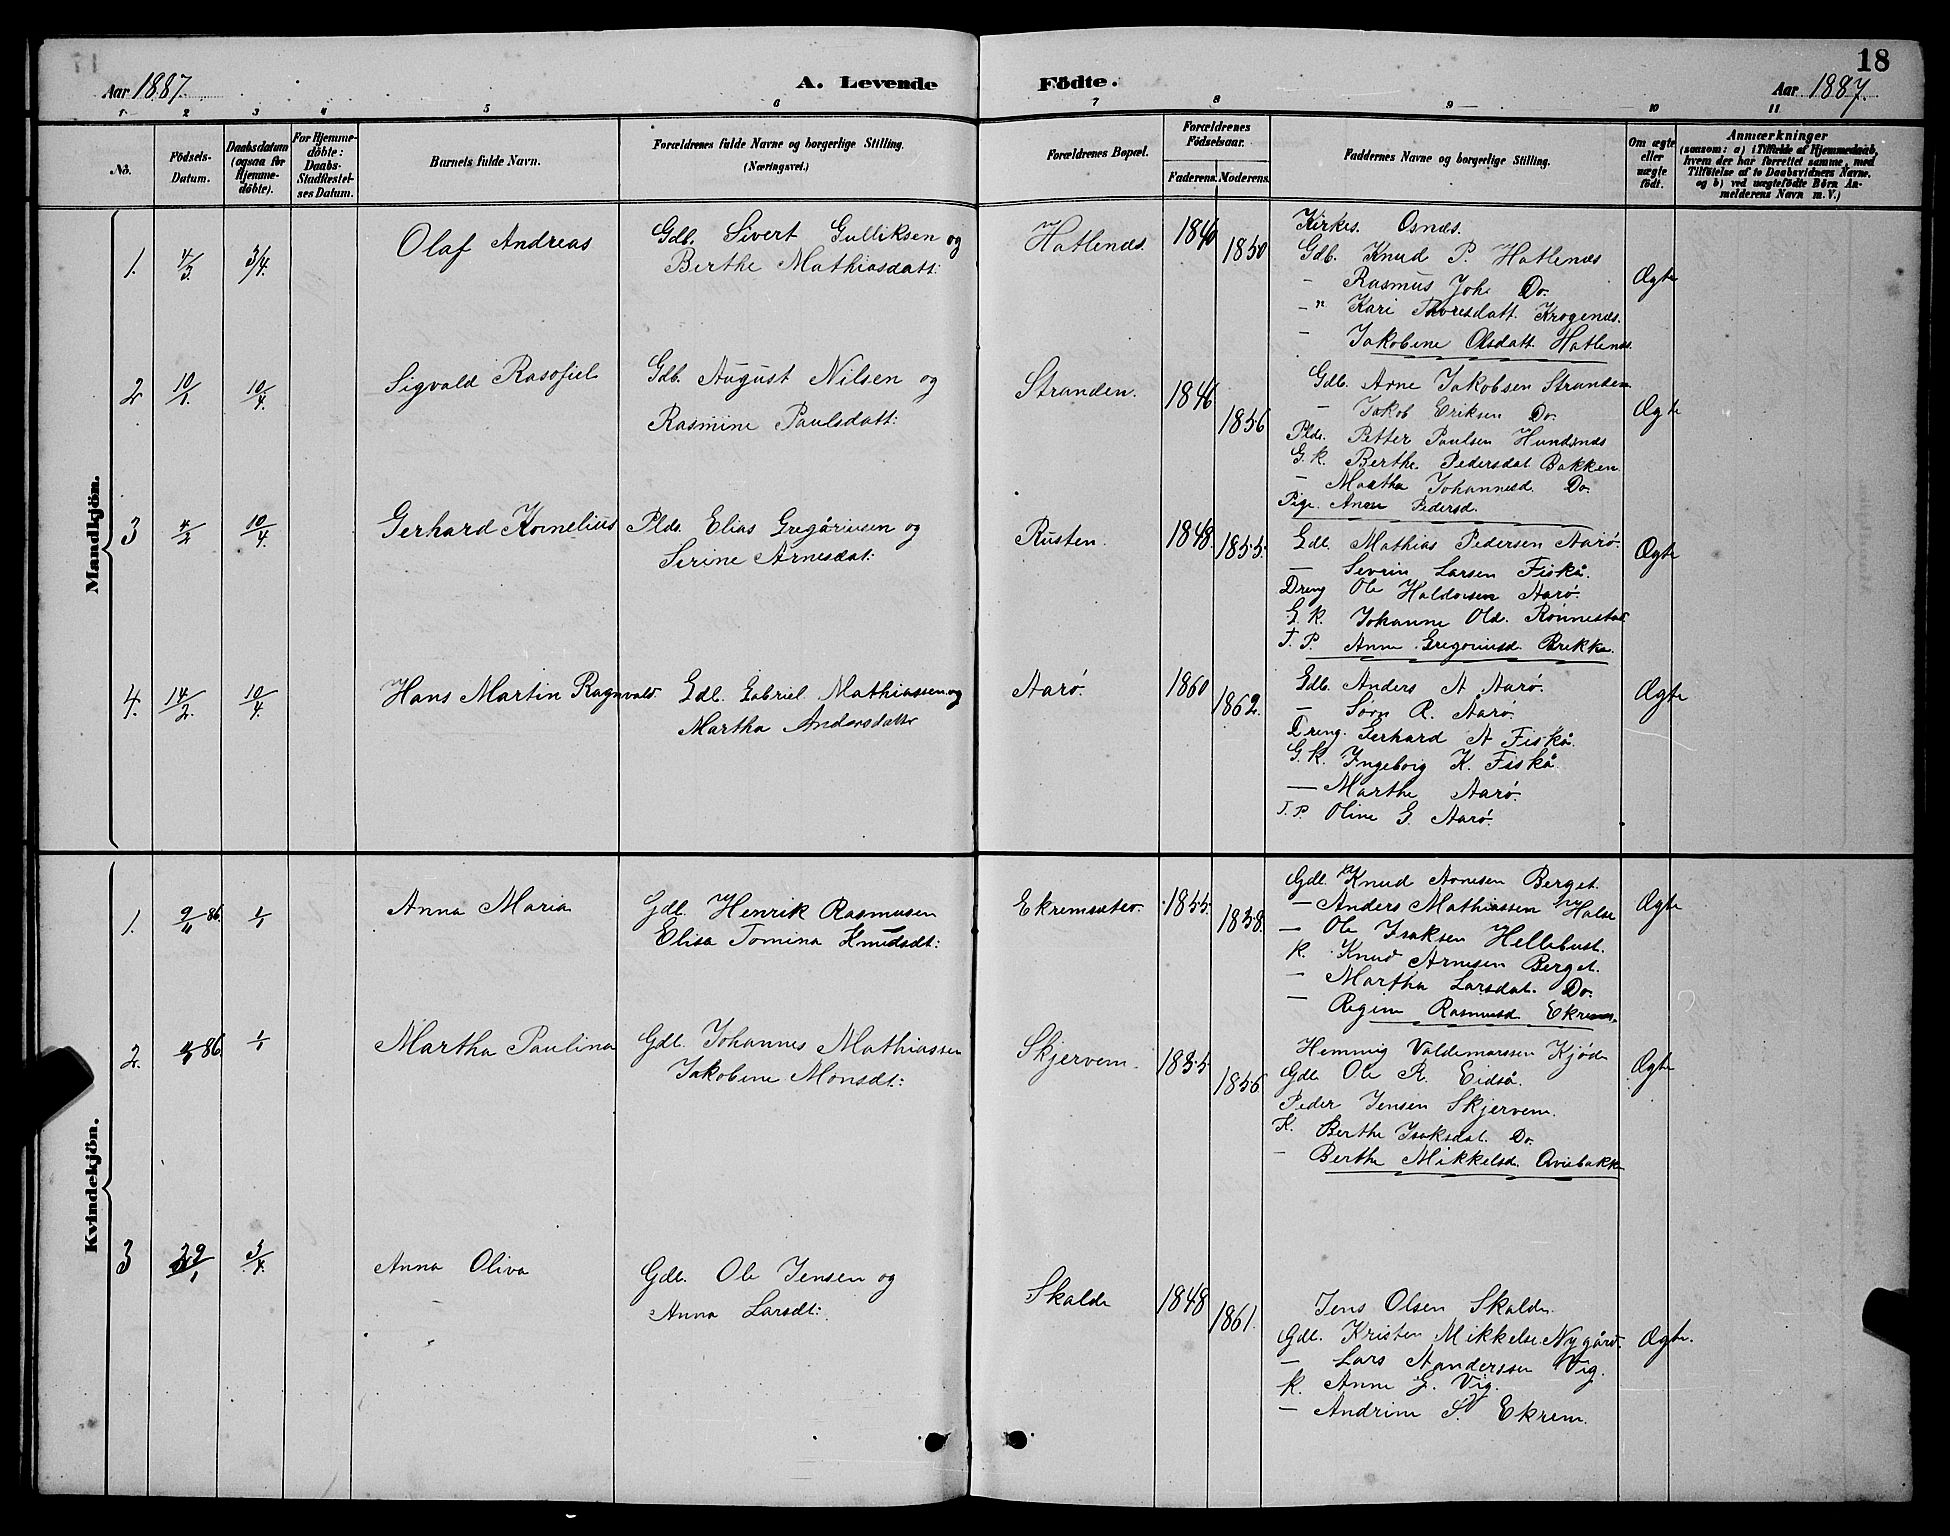 18
Aar 1887. A. Levende Födte. Aar 1887.
1 2 3 4 5 6 7 8 9 10 11
No.
Födsels-
Datum.
Daabsdatum
(ogsaa for
Hjemme-
döbte).
For Hjemme-
döbte:
Daabs-
Stadfæstel-
ses Datum.
Barnets fulde Navn.
Forældrenes fulde Navne og borgerlige Stilling.
(Næringsvei.)
Forældrenes Bopæl.
Forældrenes
Födselsaar.
Faderens. Moderens.
Faddernes Navne og borgerlige Stilling.
Om ægte
eller
uægte
født.
Anmærkninger
(saasom: a) i Tilfælde af Hjemmedaab,
hvem der har forrettet samme, med
Tilföielse af to Daabsvidners Navne.
og b) ved uægtefödte Börn An-
melderens Navn m. V.)
Mandkjön.
1. 4/3. 3/4. Olaf Andreas
Gdb. Sivert Gulliksen og
Berthe Mathiasdatt:
Hatlenes. 1840 1850
Kirkes. Osnes.
Gdb. Knud P. Hatlenæs
- Rasmus Joh. Do.
- " Kari Thoresdatt. Krogenæs.
- Jakobine Olsdatt. Hatlenæs.
Ægte
2 10/1. 10/4. Sigvald Rasofiel
Gdb. August Nilsen og
Rasmine Paulsdatt:
Stranden. 1846 1856
Gdb. Arne Jakobsen Stranden
- Jakob Eriksen Do.
Plds. Petter Paulsen Hundsnes
G. K. Berthe Pedersdat. Bakken.
- Martha Johannesd. Do.
Pige. Anne Pedersd.
Ægte
3 4/2 10/4. Gerhard Kornelius
Plds. Elias Gregoriusen og
Serine Arnesdat:
Rusten. 1848. 1855.
Gdb. Mathias Pedersen Aarø.
- Severin Larsen Fiskå.
Dreng Ole Haldorsen Aarø.
G. K. Johanne Old. Rønnestad
T. P. Anne Gregoriusd. Brekke.
Ægte
4. 14/2. 10/4. Hans Martin Ragnvald
Gdb. Gabriel Mathiassen og
Martha Andersdatter
Aarø. 1860 1862.
Gdb. Anders A Aarø.
- Sørn R. Aarø.
Dreng. Gerhard A Fiskå.
G. K. Ingeborg K. Fiskå.
- Marthe Aarø.
T. P. Oline G. Aarø.
Ægte
Kvindekjön.
1. 9/11 86. 1/1 Anna Maria
Gdb. Henrik Rasmusen
Elisa Tomina Knudsdt:
Ekremsæter. 1855. 1858.
Gdb. Knud Arnesen Berget.
- Anders Mathiassen Halse
- Ole Isaksen Hellebust.
K. Knud Arnesen Berget.
- Martha Larsdat. Do.
- Regine Rasmusd. Ekrem.
Ægte
2. 86. 1/1 Martha Paulina
Gdb. Johannes Mathiassen
Jakobine Monsdt:
Skjervem. 1855. 1856.
Hemmig Valdemarssen Kjøde
Gdb. Ole R. Eidså.
Peder Jensen Skjervem.
K. Berthe Isaksdat. Do.
- Berthe Mikkelsd. Qviebakke
Ægte
3 29/1 3/4. Anna Oliva
Gdb. Ole Jensen og
Anna Larsdt:
Skalde 1848 1861.
Jens Olsen Skalde.
Gdb. Kristen Mikkelse. Nygård.
- Lars Anderssen Vig.
K. Anne G. Vig.
- Andrine S. Ekrem.
Ægte.